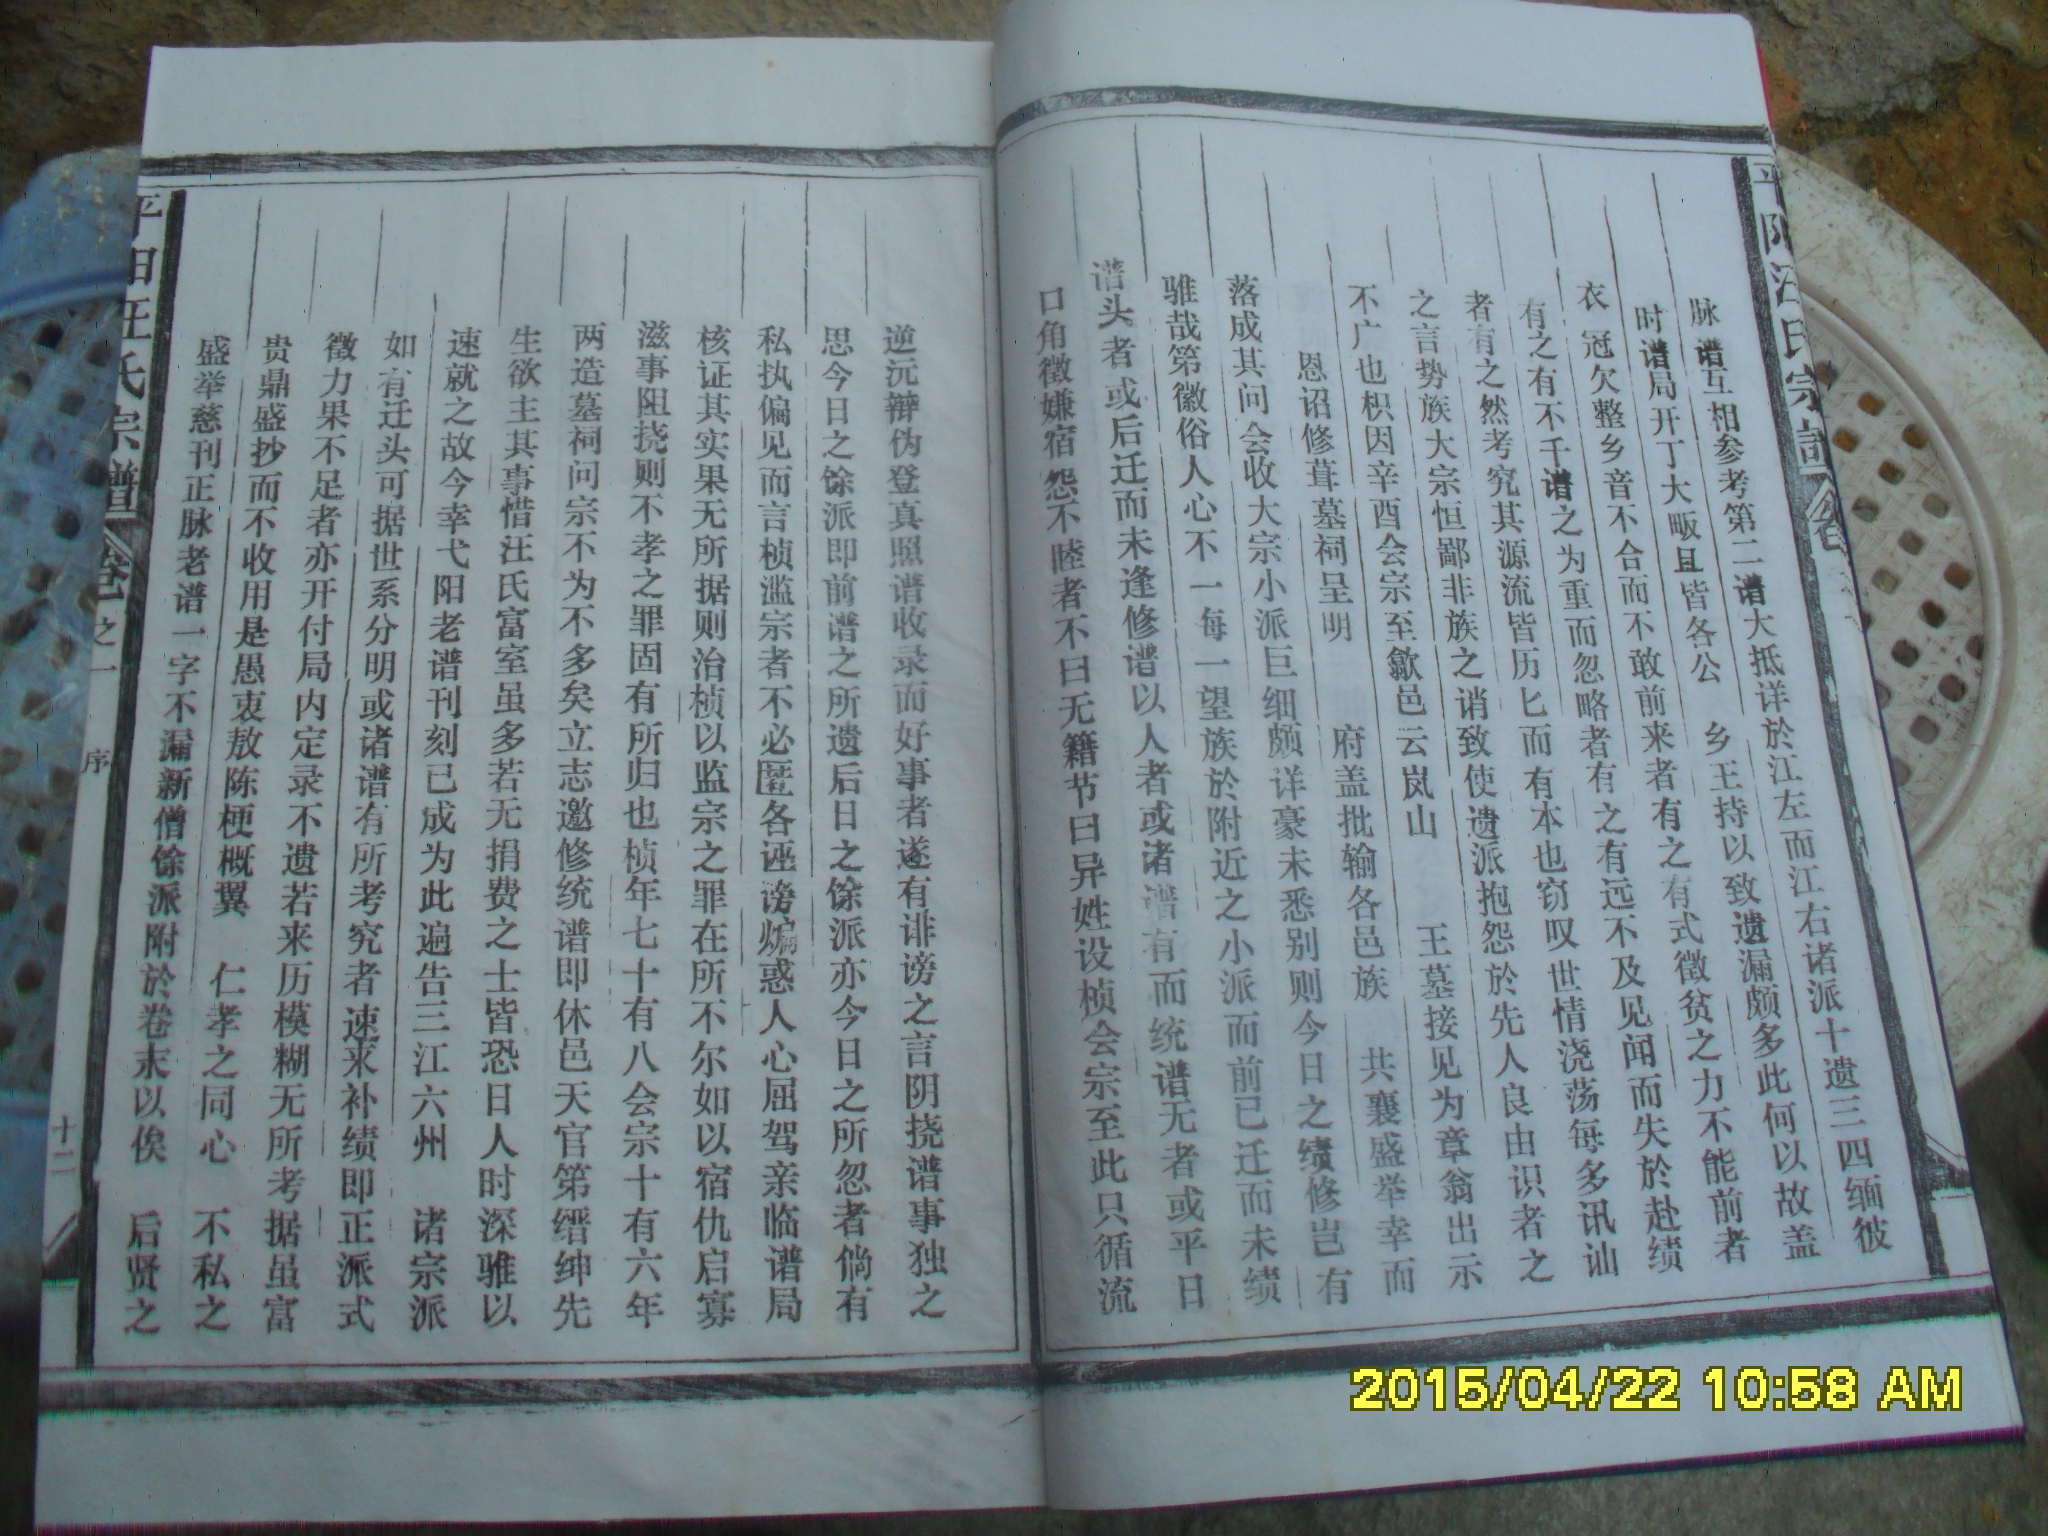 脉谱互相参考第二谱大抵详於江左而江右诸派十遗三四缅彼
时谱局开丁大畈且皆各公 乡王持以致遗漏颇多此何以故盖
衣冠欠整乡音不合而不敢前来者有之有式徵贫之力不能前者
有之有不千谱之为重而忽略者有之有远不及见闻而失於赴续
者有之然考究其源流皆历匕而有本也窃叹世情浇荡每多讯讪
之言势族大宗恒鄙非族之诮致使遗派抱怨於先人良由识者之
不广也枳因辛酉会宗至歙邑云岚山 王墓接见为章翁出示
恩诏修葺墓祠呈明 府盖批输各邑族 共襄盛举幸而
落成其问会收大宗小派巨细颇详豪未悉别则今日之绩修岂有
骓哉第徽俗人心不一每一望族於附近之小派而前已迁而未绩
谱头者或后迁而未逢修谱以人者或诸谱有而统谱无者或平日
口角徵嫌宿怨不睦者不曰无籍节曰异姓设桢会宗至此只循流
逆沅辩伪登真照谱收录而好事者遂有诽谤之言阴挠谱事独之
思今日之馀派即前谱之所遗后日之馀派亦今日之所忽者倘有
私执偏见而言桢滥宗者不必匿各诬谤煸惑人心屈驾亲临谱局
核证其实果无所据则治桢以监宗之罪在所不尔如以宿仇启寡
滋事阻挠则不孝之罪固有所归也桢年七十有八会宗十有六年
两造墓祠问宗不为不多矣立志邀修统谱即休邑天官第缙绅先
生欲主其事惜汪氏富室虽多若无捐费之士皆恐日人时深骓以
速就之故今幸弋阳老谱刊刻已成为此遍告三江六州 诸宗派
如有迁头可据世系分明或诸谱有所考究者速来补绩即正派式
徵力果不足者亦开付局内定录不遗若来历模糊无所考据虽富
贵鼎盛抄而不收用是愚衷敖陈梗概翼 仁孝之同心 不私之
盛举慈刊正脉老谱一字不漏新僧馀派附於卷末以俟 后贤之
平阳汪氏宗谱 卷之一 序 十二
2015/04/22 10:58 AM